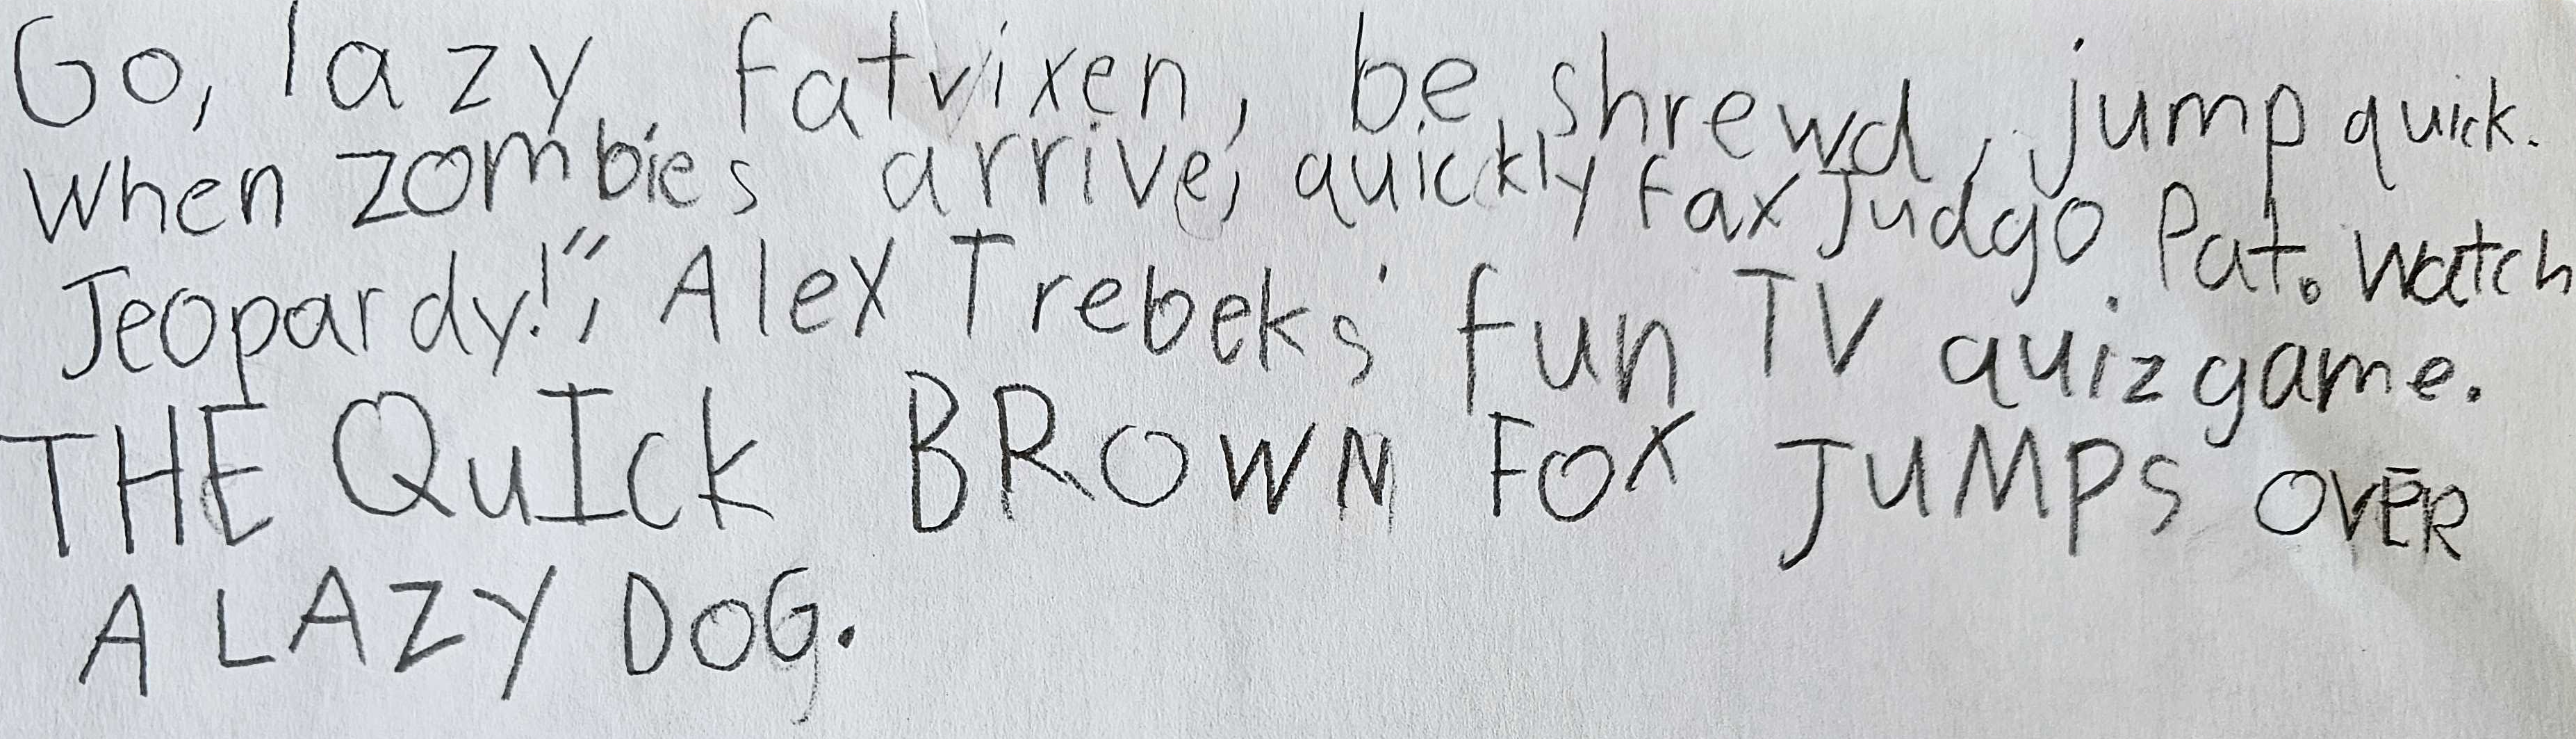 Go, lazy fat vixen, be shrewd, jump quick.
When zombies arrive, quickly fax Judgo Pat. Watch
Jeopardy!", Alex Trebeks' fun TV quiz game.
THE QuICk BROWN FOX JUMPS OVER
A LAZY DOG.